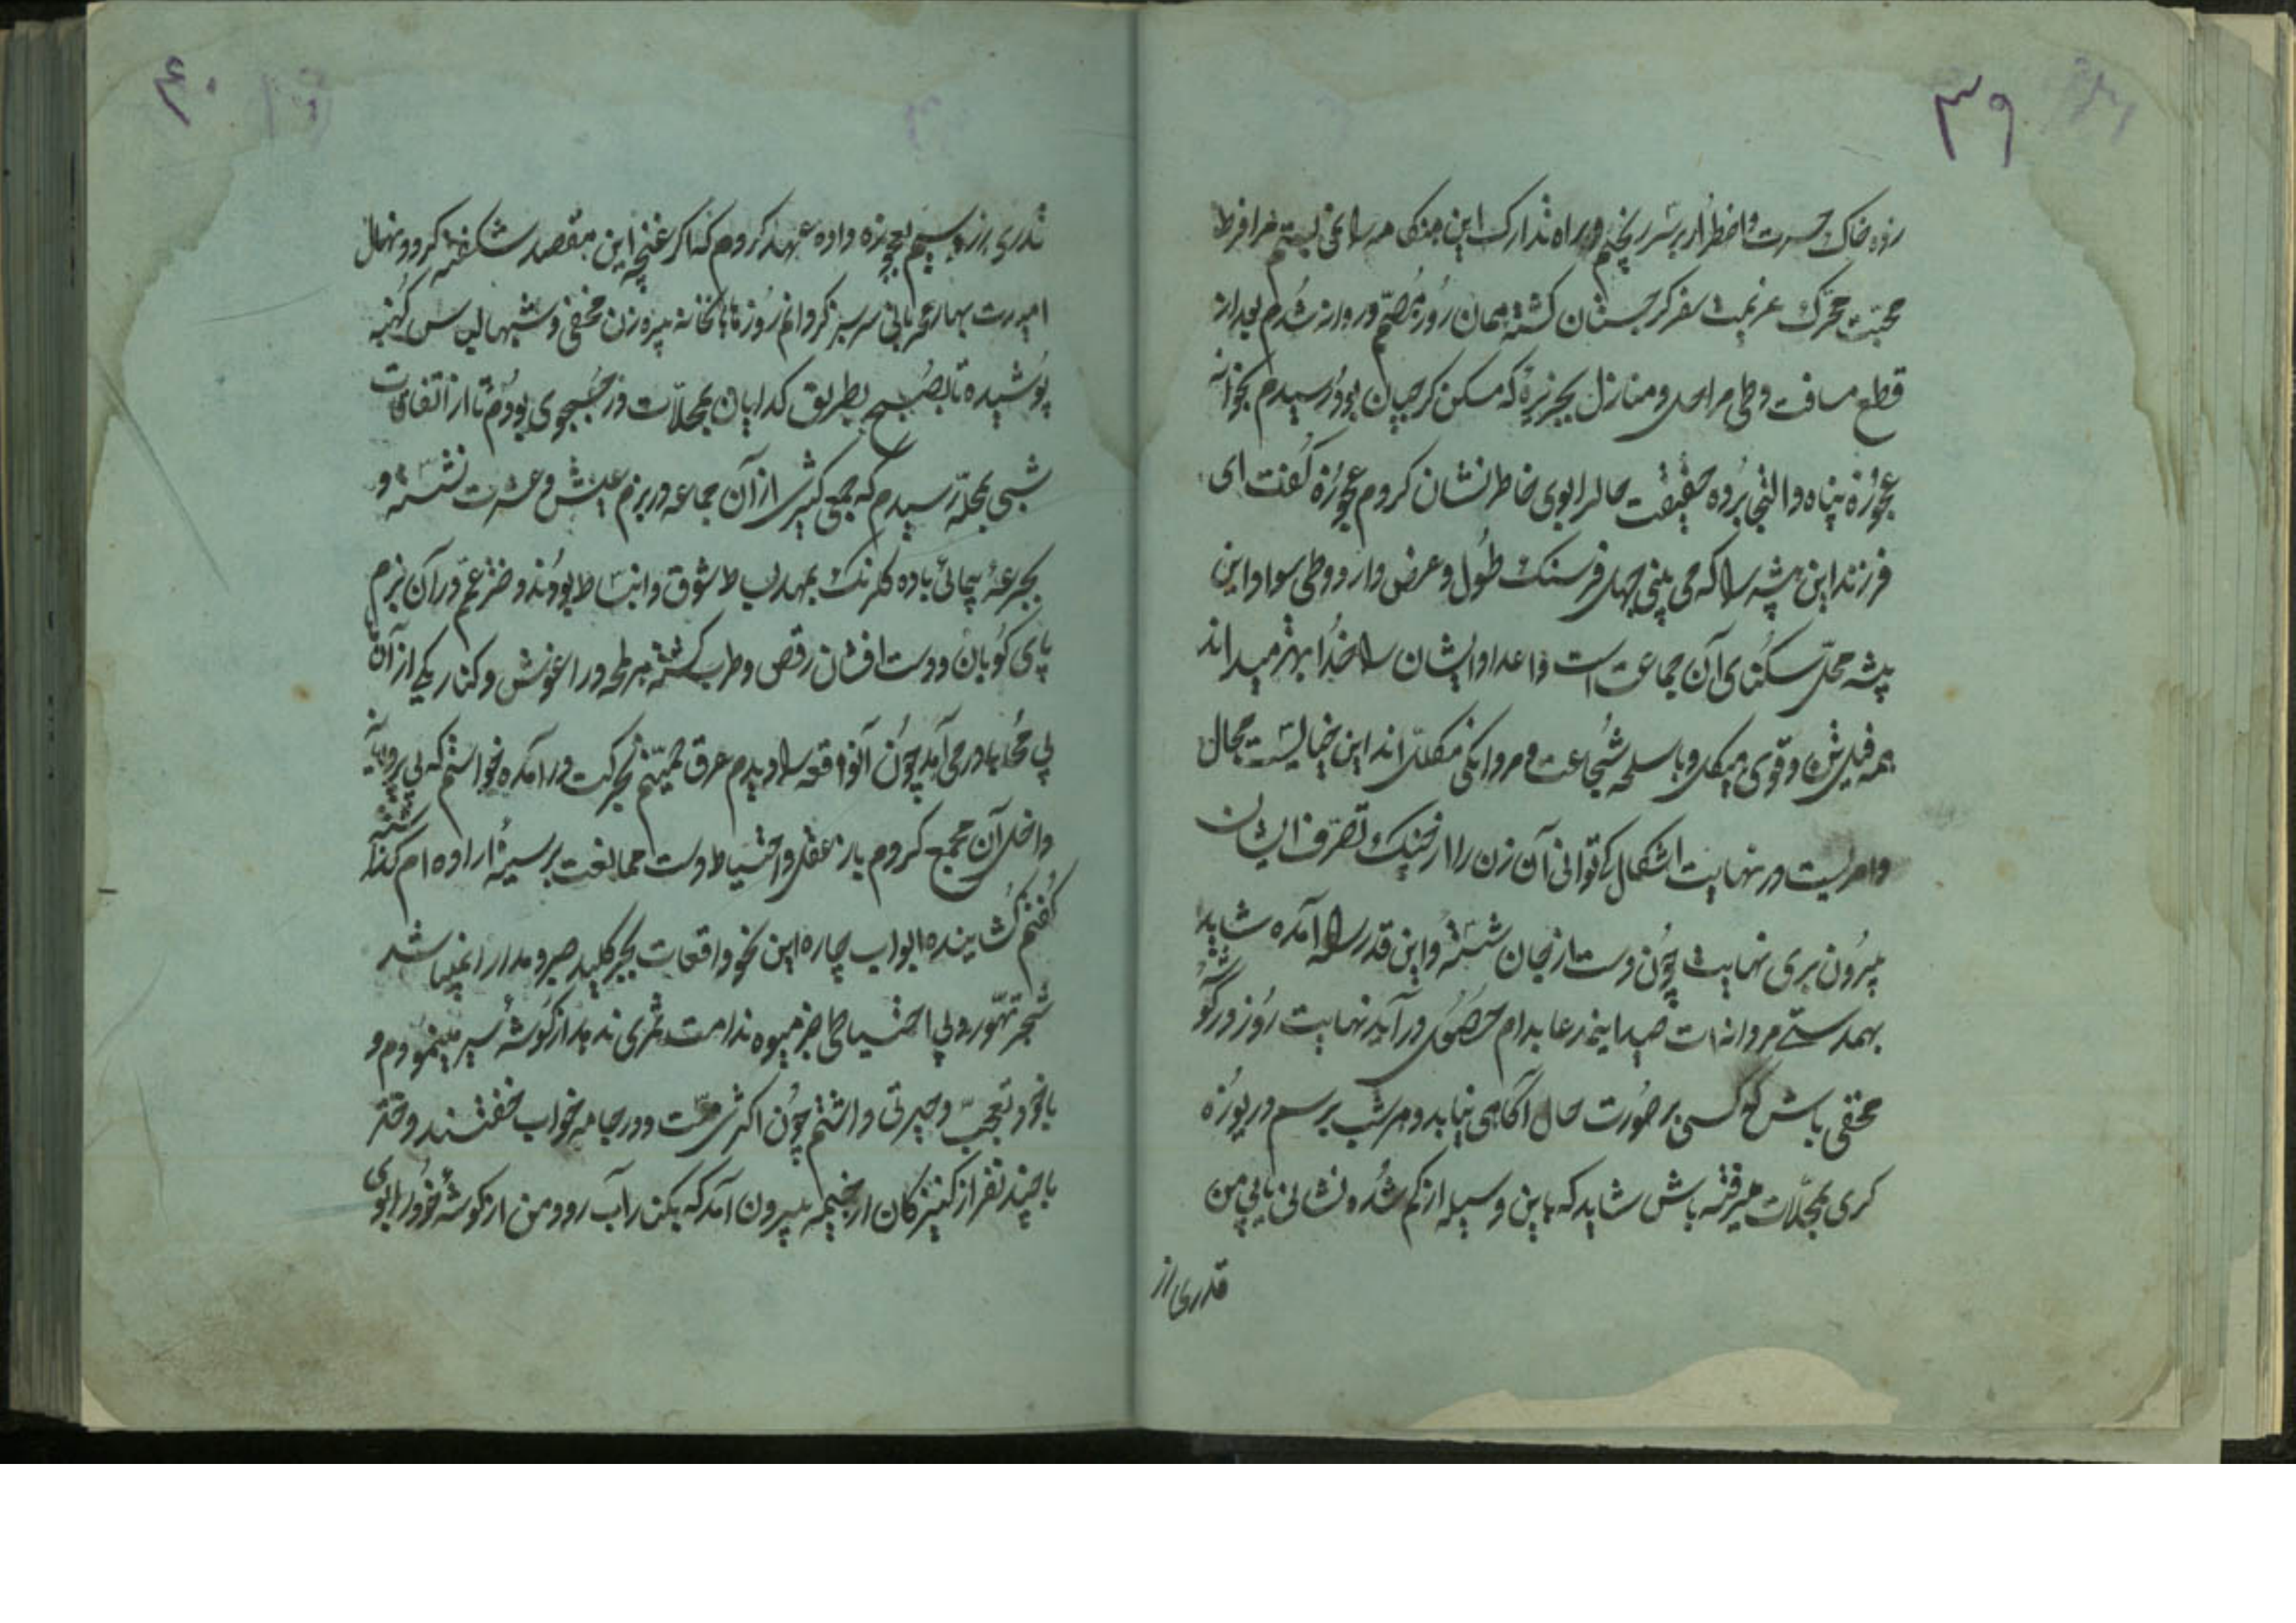 ۳۹
زده خاک حسرت و اضطرار بر سر ریختم و راه تدارک این هنکامه را نمی‌بستم مرا فرط
محبت محرک عزیمت سفر کرجستان کشته همان روز مصمم و روانه شدم بعد از
قطع مسافت و طی مراحل و منازل بجزیرهٔ که مسکن کرجیان بود رسیدم بخانه
عجوزه پناه و التجا برده حقیقت حال را بوی خاطر نشان کردم عجوزه کفت ای
فرزند این بیشه را که می بینی چهل فرسنک طول و عرض دارد و طی سواد این
بیشه محل سکنای آن جماعت است و اعداد ایشان را خدا بهتر میداند
همه فیل تن و قوی هیکل و با سلحه شجاعت و مردانکی مکلل اند این خیالیست محال
و امریست در نهایت اشکال کی توانی آن زن را از چنک تصرف ایشان
بیرون بری نهایت چون دست از جان شسته و این قدر راه آمده شاید
بهمدستی مردانه ات صید این مدعا بدام حصول در آید نهایت روز در کوشه
مخفی باش که کسی بر صورت حال آکاهی نیابد و هر شب برسم دریوزه
کری بمحلات میرفته باش شاید که باین وسیله از کم شده نشانی یابی من
قدری از
۴۰
قدری زر و سیم بعجوزه داده عهد کردم که اکر غنچه این مقصد شکفته کردد و نهال
امیدت بهار مهربانی سرسبز کردانم روزها بخانه پیره زن مخفی و شبها لباس کهنه
پوشیده تا بصبح بطریق کدایان بمحلات در جستجوی بودم تا از اتفاقات
شبی بمحله رسیدم که جمعی کثیر از آن جماعه در بزم عیش و عشرت نشسته و
بجرعهٔ پیمائی باده کلرنک ممهد بساط شوق و انبساط بودند و دختر عم در آن بزم
پای کوبان و دست افشان رقص و طرب کشته هر لحظه در اغوش و کنار یکی از آن
بی محابا در می آمد چون آنواقعه را دیدم عرق حمیتم بحرکت در آمده خواستم که بی پروایانه
داخل آن مجمع کردم باز عقل و احتیاط دست ممانعت بر سینهٔ اراده ام کذاشته
کفتم کشاینده ابواب چاره این نحو واقعات بجز کلید صبر و مدارا نمیباشد
شجر تهور و بی احتیاطی جز میوه ندامت ثمری ندهد از کوشهٔ سیر مینمودم و
با خود تعجب و حیرتی داشتم چون اکثری مست و در جامه خواب خفتند دختر
با چند نفر از کنیزکان از خیمه بیرون آمد که بکنار آب رود من از کوشه خود را بوی